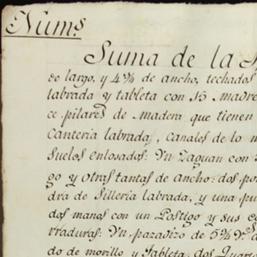 Nums
Suma de la
de largo, y 4¾ de ancho, techados
labrada y tableta con 15 madre
ce pilares de madera que tienen
Canteria labrada, canales de lo m
suelos enlosados: Un Zaguan con
go y otras tantas de ancho: dos po
dra de Silleria labrada, y una pu
dos manos con un Postigo y sus c
rraduras: Un pazadizo de 5¾ v.s
do de morillo y Tableta: dos Quart